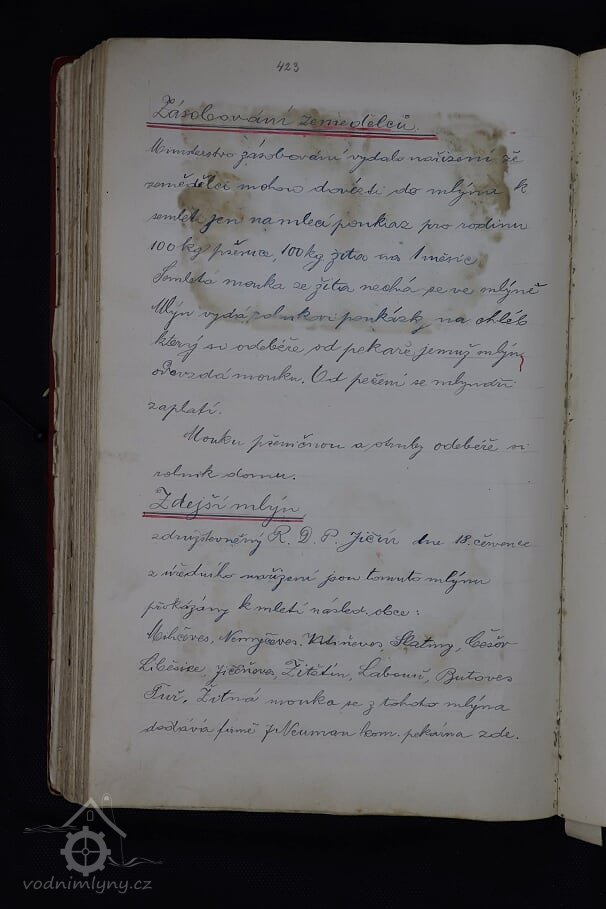 423
Zásobování zemědělců.
Ministerstvo zásobování vydalo nařízení že
zemědělci mohou dovézti do mlýna k
semletí jen na mlecí poukaz pro rodinu
100 kg pšenice, 100 kg žita na 1 měsíc.
Semletá mouka ze žita nechá se ve mlýně
Mlýn vydá rolníkovi poukázky na chléb
který si odebéře od pekaře jemuž mlýn
odevzdá mouku. Od pečení se mlynáři
zaplatí.
Mouku pšeničnou a otruby odebéře si
rolník domu.
Zdejší mlýn
združstevněný R. D. P. Jičín dne 18. července
z úředního nařízení jsou tomuto mlýnu
přikázány k mletí násled. obce:
Milíčeves, Nemyčeves, Vitiněves, Slatiny, Češov
Liběšice, Jičíněves, Žitětín, Labouň, Butoves
Tuř. Žitná mouka se z tohoto mlýna
dodává firmě J. Neuman kom. pekárna zde.
vodnimlyny.cz